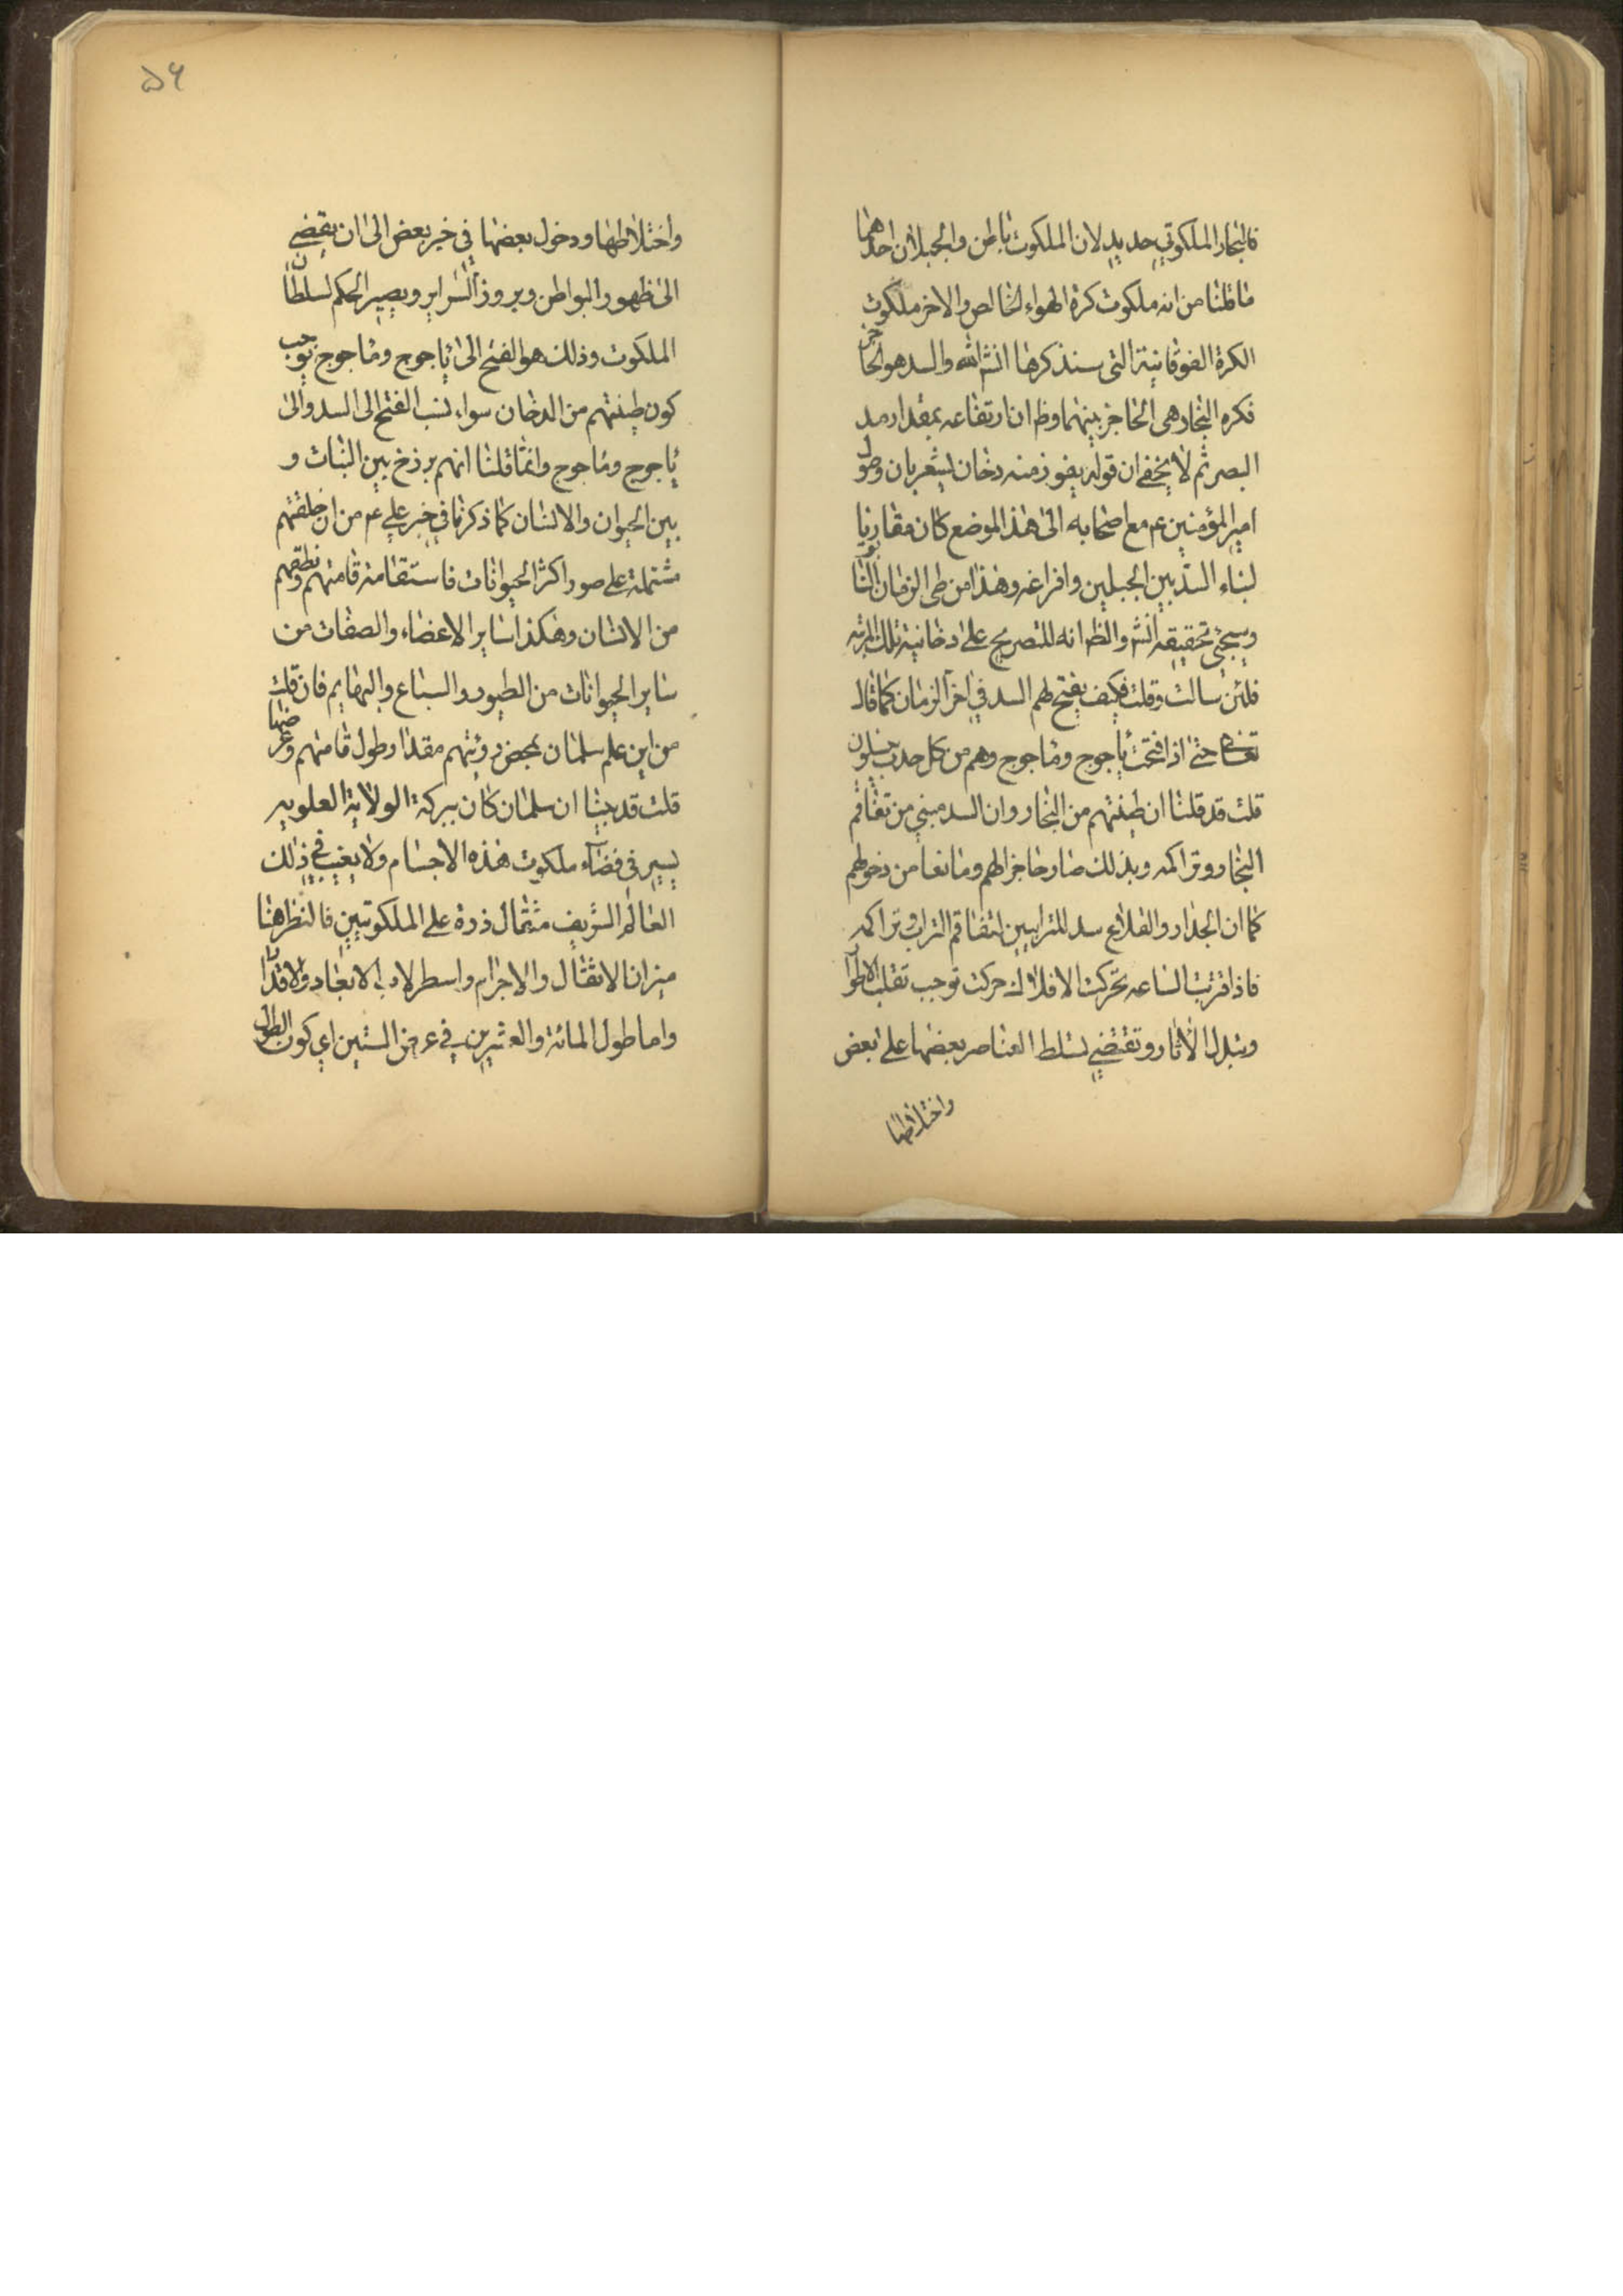 فالبخار الملكوتي حديد لان الملكوت باطن والجبلان احدهما
ما قلنا من انه ملكوت كرة الهواء الخالص والاخر ملكوت
الكرة الفوقانية التي سنذكرها انشم الله والسد هو الحاجز
فكره البخار هي الحاجز بينهما وظ ان ارتفاعه بمقدار مد
البصر ثم لا يخفى ان قوله يفوز منه دخان يشعر بان وصول
امير المؤمنين ع مع اصحابه الى هذا الموضع كان مقارنا
لبناء السد بين الجبلين وافراغه وهذا من طى الزمان
وسيجئ تحقيقه انش والظ انه للتصريح على دخانية تلك المرتبه
فلئن سالت وقلت فكيف يفتح لهم السد في اخر الزمان كما قال
تعالى حتى اذا فتحت يأجوج وماجوج وهم من كل حدب ينسلون
قلت قد قلنا ان طينتهم من البخار وان السد مبني من تفاقم
البخار وتراكمه وبذلك صار حاجزا لهم ومانعا من دخولهم
كما ان الجدار والقلاع سد للترابيين لتفاقم التراب وتراكمه
فاذا قربت الساعه تحركت الافلاك حركت توجب تقلب الاطوار
وتبدل الاثار وتقتضي تسلط العناصر بعضها على بعض
واختلاطها
۵۶
واختلاطها ودخول بعضها في خير بعض الى ان يقضي
الى ظهور البواطن وبروز السراير ويصير الحكم لسلطان
الملكوت وذلك هو الفتح الى ياجوج وماجوج يوجب
كون طينتهم من الدخان سواء نسب الفتح الى السد والى
ياجوج وماجوج وانما قلنا انهم برزخ بين النبات و
بين الحيوان والانسان كما ذكرنا في خبر علي ع من ان خلقتهم
مشتملة على صور اكثر الحيوانات فاستقامة قامتهم ونطقهم
من الانسان وهكذا ساير الاعضاء والصفات من
ساير الحيوانات من الطيور والسباع والبهايم فان قلت
من اين علم سلمان بمحض رؤيتهم مقدار طول قامتهم وعرضها
قلت قد بينا ان سلمان كان ببركة الولاية العلويه
يسير في فضاء ملكوت هذه الاجسام ولا يغيب في ذلك
العالم الشريف مثقال ذرة على الملكوتيين فالنظر هنا
ميزان الاثقال والاجرام واسطرلاب الابعاد والاقدار
واما طول المائة والعشرين في عرض الستين اي كون الطول